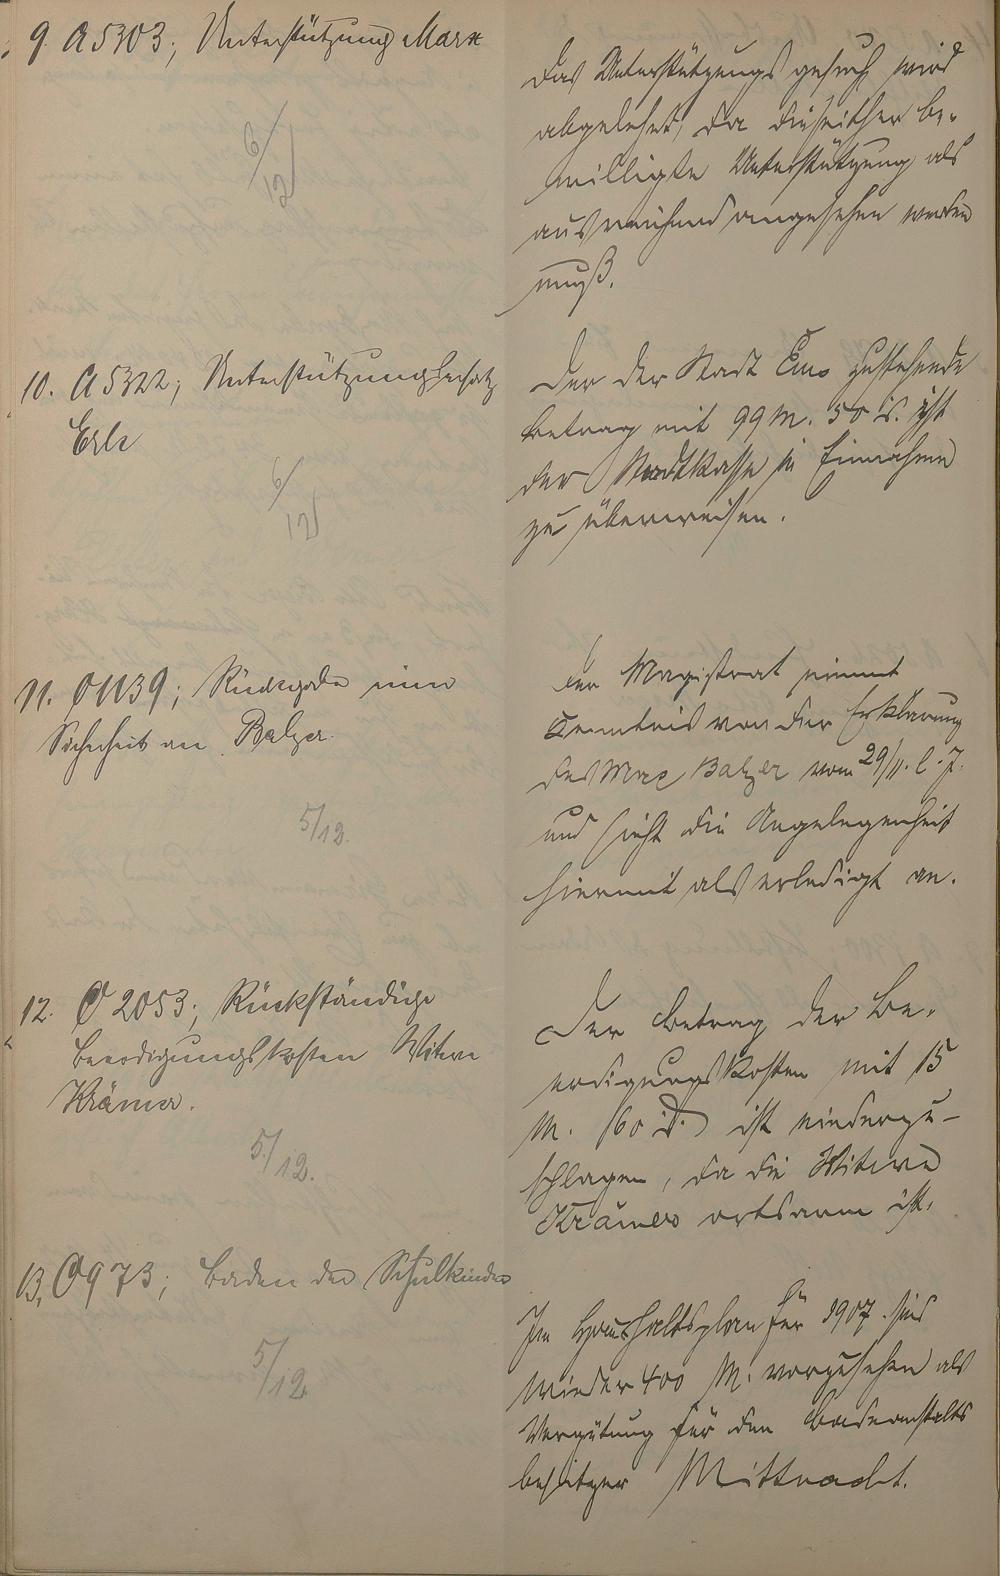 9. A 5303; Unterstützung Marx
Das Unterstützungsgesuch wird
abgelehnt, da die seither be-
willigte Unterstützung als
ausreichend angesehen werden
muß.
6/12
10. A 5322; Unterstützungsersatz
Erle
Der der Stadt Ems zustehende
Betrag mit 99 M. 50 d. ist
der Stadtkasse in Einnahme
zu überweisen.
6/12
11. O 1139; Rückgabe einer
Sicherheit an Balzer.
Der Magistrat nimmt
Kenntnis von der Erklärung
des Max Balzer vom 29/11. l. J.
und sieht die Angelegenheit
hiermit als erledigt an.
5/12.
12. O 2053; Rückständige
Beerdigungskosten Witwe
Krämer.
Der Betrag der Be-
erdigungskosten mit 15
M. 60 d. ist niederzu-
schlagen, da die Witwe
Krämer ortsarm ist.
5/12.
13. O 973; Baden der Schulkinder
Im Haushaltsplan für 1907 sind
wieder 400 M. vorzusehen als
Vergütung für den Badeanstalts
besitzer Mittnacht.
5/12.